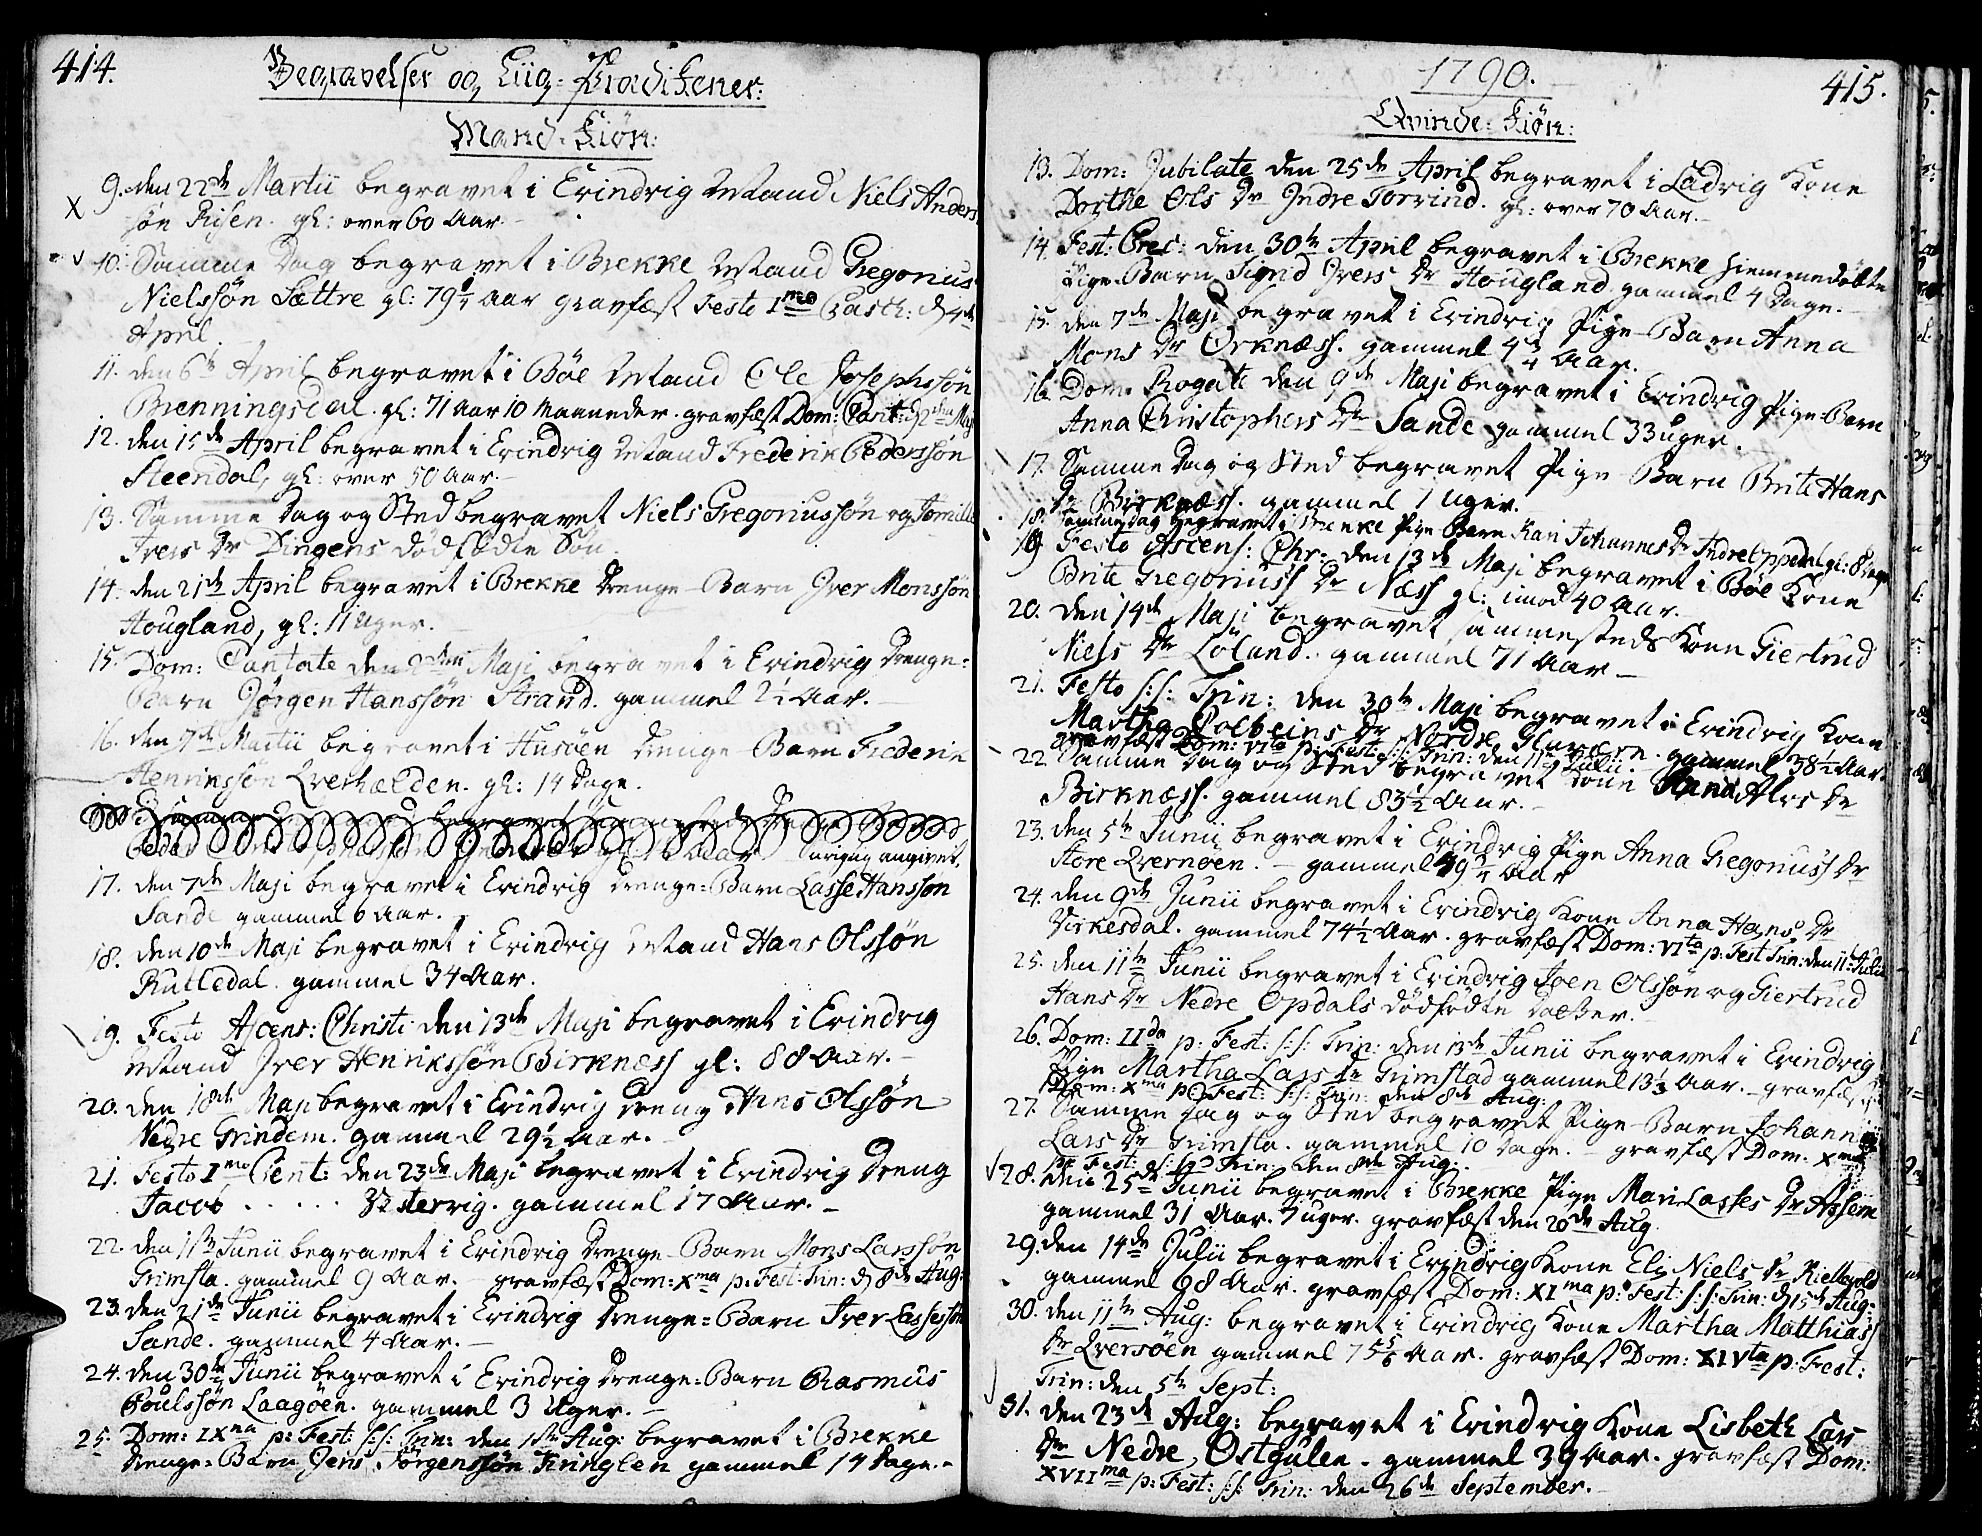 414.
Begravelser og Liig-Prædikener:
Mand-Kiön:
9. den 22de Martii begravet i Evindvig Mand Niels Anders
søn Risen. gl: over 60 Aar.
10. Samme Dag begravet i Brekke Mand Gregorius
Nielssøn Sættre gl: 79½ Aar gravfæst Festo Imo Pasch: d 4de
April.
11. den 6te April begravet i Böe Mand Ole Josephssøn
Brenningsdal. gl: 71 Aar 10 Maaneder. gravfæst Dom: Cant: d 2den Maji
12. den 15de April begravet i Evindvig Mand Frederik Pederssøn
Steendal, gl: over 50 Aar.
13. Samme Dag og Sted begravet Niels Gregoriussøn og
Ivers Dr Dingens dödfödte Sön.
14. den 21de April begravet i Brekke Drenge-Barn Iver Monssøn
Hougland, gl: 11 Uger.
15. Dom: Cantate den 2den Maji begravet i Evindvig Drenge-
Barn Jörgen Hanssøn Strand. gammel 2½ Aar.
16. den 7de Martii begravet i Husöen Drenge-Barn Frederik
Henrikssøn Qverhælden. gl: 14 Dage.
angivet.
17. den 7de Maji begravet i Evindvig Drenge-Barn Lasse Hanssøn
Sande gammel 6 Aar.
18. den 10de Maji begravet i Evindvig Mand Hans Olssøn
Rutledal. gammel 34 Aar.
19. Festo Ascens: Christi den 13de Maji begravet i Evindvig
Mand Iver Henrikssøn Birknæss gl: 88 Aar.
20. den 18de Maji begravet i Evindvig Dreng Hans Olssøn
Nedre Grindem. gammel 29½ Aar.
21. Festo Imo Pent: den 23de Maji begravet i Evindvig Dreng
Jacob . . . . . gammel 17 Aar.
22. den 11te Junii begravet i Evindvig Drenge-Barn Mons Larssøn
Grimsta. gammel 9 Aar. gravfæst Dom: Xma p: Fest: Trin: d 8de Aug:
23. den 21de Junii begravet i Evindvig Drenge-Barn Iver Lassessøn
Sande. gammel 4 Aar.
24. den 30te Junii begravet i Evindvig Drenge-Barn Rasmus
Poulssøn Laagöen. gammel 3 Uger.
25. Dom: IXna p: Fest: s: s: Trin: den 1ste Aug: begravet i Brekke
Drenge-Barn Jens Jörgenssøn gammel 14 Dage.
1790. 415.
Qvinde-Kiön:
13. Dom: Jubilate den 25de April begravet i Ladvig Kone
Dorthe Ols Dr Indre Torvind. gl: over 70 Aar.
14. Fest: Prec: den 30te April begravet i Brekke hiemmedöbte
Pige-Barn Signd Ivers Dr Hougland gammel 4 Dage.
15. den 7de Maji begravet i Evindvig Pige-Barn Anna
Mons Dr Orknæss. gammel 4¾ Aar.
16. Dom: Rogate den 9de Maji begravet i Evindvig Pige-Barn
Anna Christophers Dr Sande gammel 33 Uger.
17. Samme Dag og Sted begravet Pige-Barn Brite Hans
Dr Birknæss. gammel 1 Uger.
18. Samme Dag begravet i Brekke Pige Barn Kari Johannes Dr Indre Oppedal gl: 8 Dage
19 Festo Ascens: Chr: den 13de Maji begravet i Böe Kone
Brite Gregoriuss Dr Næss gl: imod 40 Aar.
20. den 14de Maji begravet sammesteds Kone Giertrud
Niels Dr Löland. gammel 71 Aar
21. Festo s: s: Trin: den 30te Maji begravet i Evindvig Kone
Martha Colbeins Dr Nordre gammel 38½ Aar.
gravfæst Dom: VIta p: Fest: s: s: Trin: den 11te Julii.
22. Samme Dag og Sted begravet Kone Anna Alvs Dr
Birknæss. gammel 83½ Aar.
23. den 5te Junii begravet i Evindvig Pige Anna Gregoriuss Dr
Store Qvernöen. gammel Aar
24. den 9de Junii begravet i Evindvig Kone Anna Hans Dr
Virkesdal. gammel 74½ Aar. gravfæst Dom: VIta p: Fest Trin: den 11te Julii
25. den 11te Junii begravet i Evindvig Joen Olssøn og Giertrud
Hans Dr Nedre Opdals dödfödte Datter.
26. Dom: IIda p: Fest: s: s: Trin: den 13de Junii begravet i Evindvig
Pige Martha Lars Dr Grimstad gammel 13⅓ Aar. gravfæst
Dom: Xma p: Fest: s: s: Trin: den 8de Aug:
27. Samme Dag og Sted begravet Pige-Barn Johanna
Lars Dr Grimsta. gammel 10 Dage. gravfæst Dom: Xma
p: Fest: s: s: Trin: den 8de Aug:
28. den 25de Junii begravet i Brekke Pige Mari Lasses Dr Assem
gammel 31 Aar. 7 uger. gravfæst den 20de Aug.
29. den 14de Julii begravet i Evindvig Kone Eli Niels Dr
gammel 98 Aar. gravfæst Dom: XIma p: Fest: s: s: Trin: d 15de Aug:
30. den 11te Aug: begravet i Evindvig Kone Martha Matthiass
Dr Qversöen gammel 75⅚ Aar. gravfæst Dom: XIVta p: Fest:
Trin: den 5te Sept:
31. den 23de Aug: begravet i Evindvig Kone Lisbeth Lars
Dr Nedre Ostgulen. gammel 39 Aar. gravfæst Dom:
XVIIma p: Fest: s: s: Trin: den 26de September.